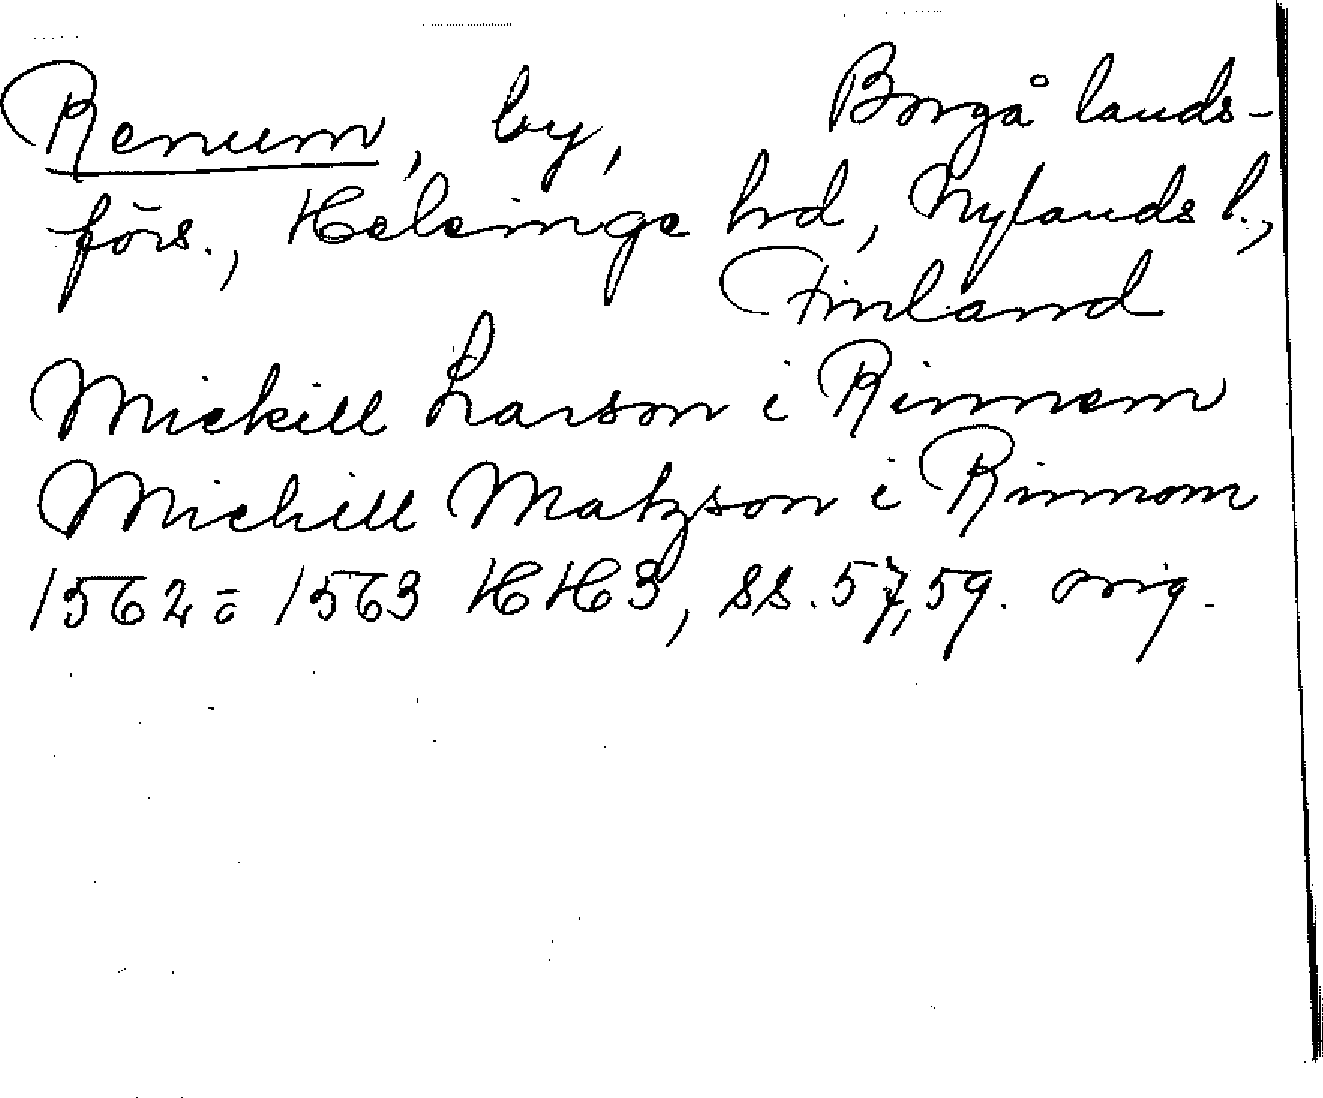 Renum, by, Borgå lands-
förs., Helsinge hrd, Nylands l.,
Finland
Mickill Larson i Rinnem
Michill Matzson i Rinnom
1562 - 1563 HH3, ss. 57, 59. orig.